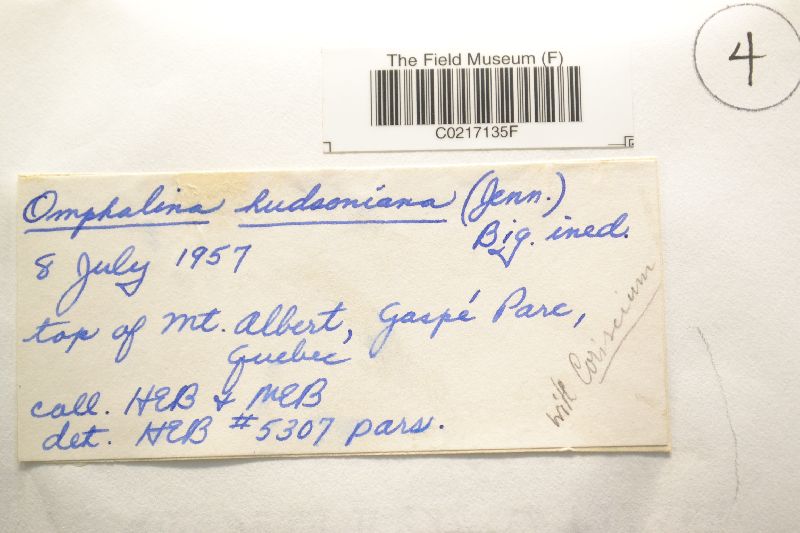 The Field Museum (F)
C0217135F
4
Omphalina hudsoniana (Jenn.)
Big. ined.
8 July 1957
top of Mt. Albert, Gaspé Parc,
Quebec
coll. HEB & MEB
det. HEB #5307 pars.
with Coriscium